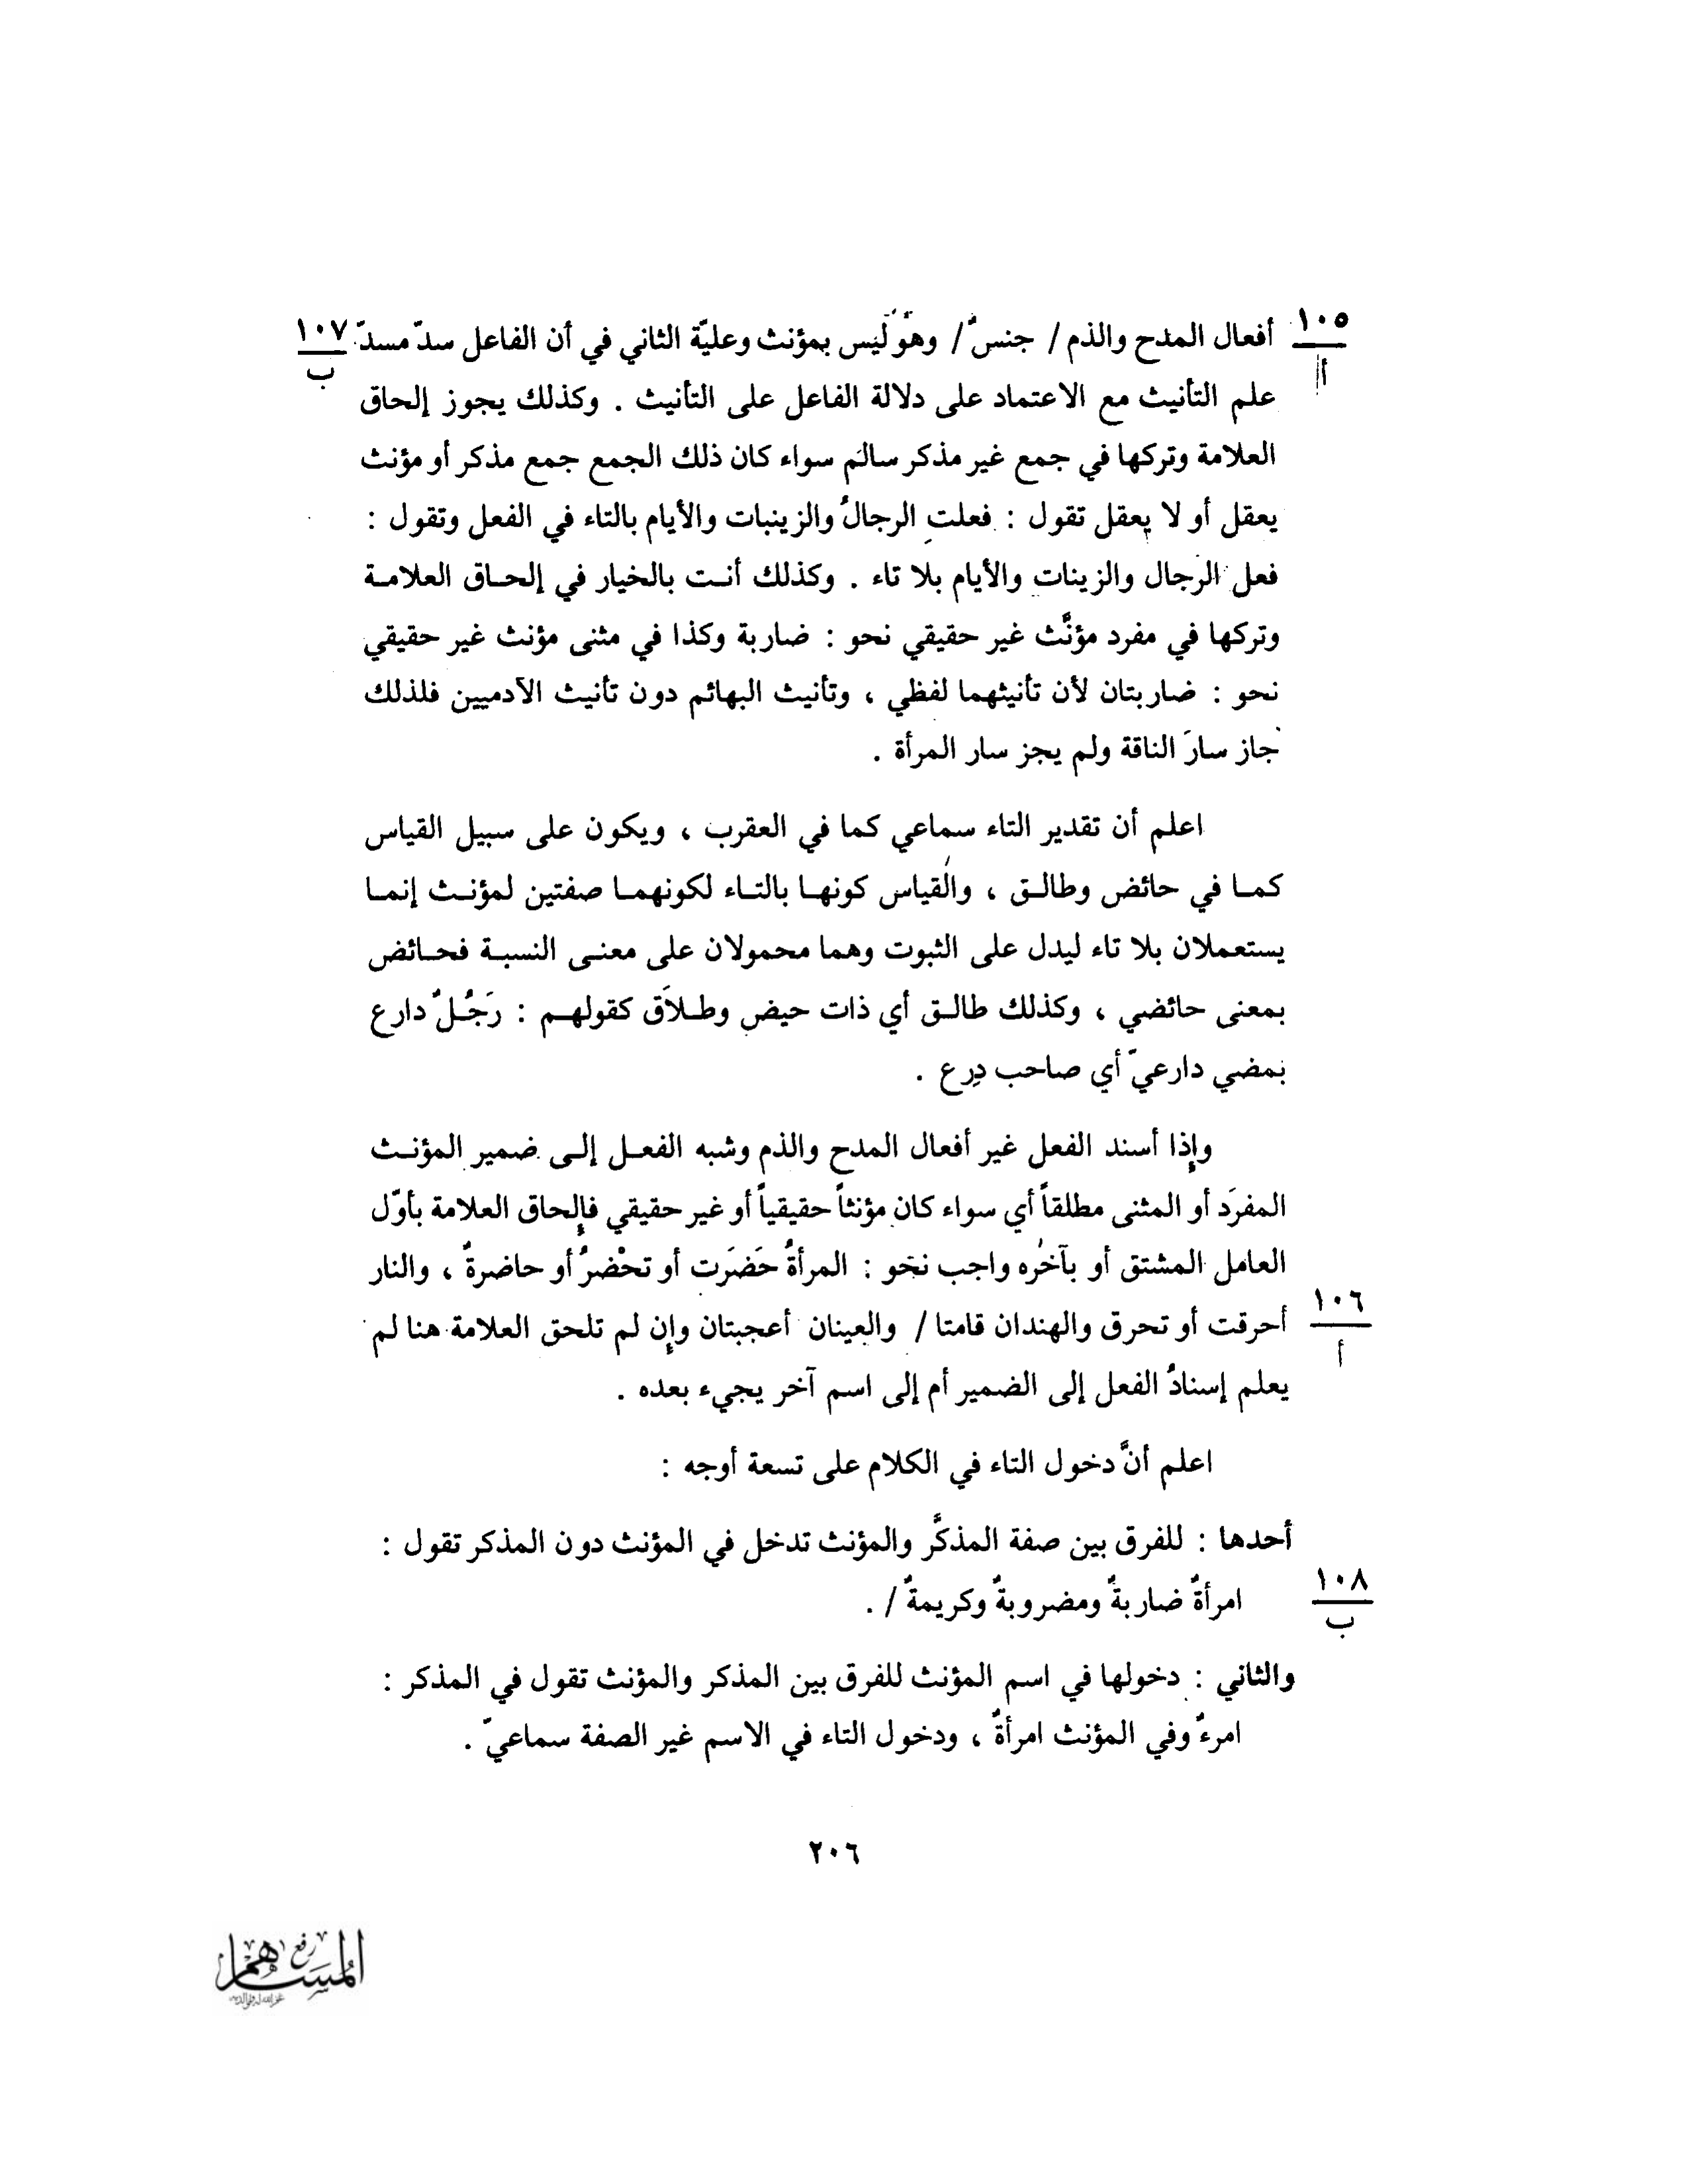 ١٠٥
أ
أفعال المدح والذم / جنسٌ / وهو ليس بمؤنث وعليّة الثاني في أن الفاعل سدّ مسدّ
١٠٧
ب
علم التأنيث مع الاعتماد على دلالة الفاعل على التأنيث . وكذلك يجوز إلحاق
العلامة وتركها في جمع غير مذكر سالم سواء كان ذلك الجمع جمع مذكر أو مؤنث
يعقل أو لا يعقل تقول : فعلتِ الرجالُ والزينبات والأيام بالتاء في الفعل وتقول :
فعل الرجال والزينات والأيام بلا تاء . وكذلك أنت بالخيار في إلحاق العلامة
وتركها في مفرد مؤنَّث غير حقيقي نحو : ضاربة وكذا في مثنى مؤنث غير حقيقي
نحو : ضاربتان لأن تأنيثهما لفظي ، وتأنيث البهائم دون تأنيث الآدميين فلذلك
جاز سارَ الناقة ولم يجز سار المرأة .
اعلم أن تقدير التاء سماعي كما في العقرب ، ويكون على سبيل القياس
كما في حائض وطالق ، والقياس كونها بالتاء لكونهما صفتين لمؤنث إنما
يستعملان بلا تاء ليدل على الثبوت وهما محمولان على معنى النسبة فحائض
بمعنى حائضي ، وكذلك طالق أي ذات حيض وطلاَق كقولهم : رَجُلٌ دارع
بمضي دارعيّ أي صاحب دِرع .
وإذا أسند الفعل غير أفعال المدح والذم وشبه الفعل إلى ضمير المؤنث
المفرَد أو المثنى مطلقاً أي سواء كان مؤنثاً حقيقياً أو غير حقيقي فإلحاق العلامة بأوّل
العامل المشتق أو بآخرُه واجب نحو : المرأةُ حَضَرَت أو تحْضرُ أو حاضرةٌ ، والنار
١٠٦
أ
أحرقت أو تحرق والهندان قامتا / والعينان أعجبتان وإن لم تلحق العلامة هنا لم
يعلم إسنادُ الفعل إلى الضمير أم إلى اسم آخر يجيء بعده .
اعلم أنَّ دخول التاء في الكلام على تسعة أوجه :
أحدها : للفرق بين صفة المذكَّر والمؤنث تدخل في المؤنث دون المذكر تقول :
١٠٨
ب
امرأةٌ ضاربةٌ ومضروبةٌ وكريمةٌ / .
والثاني : دخولها في اسم المؤنث للفرق بين المذكر والمؤنث تقول في المذكر :
امرءٌ وفي المؤنث امرأةٌ ، ودخول التاء في الاسم غير الصفة سماعيّ .
٢٠٦
رفع
المساهم
غفر الله له ولوالديه